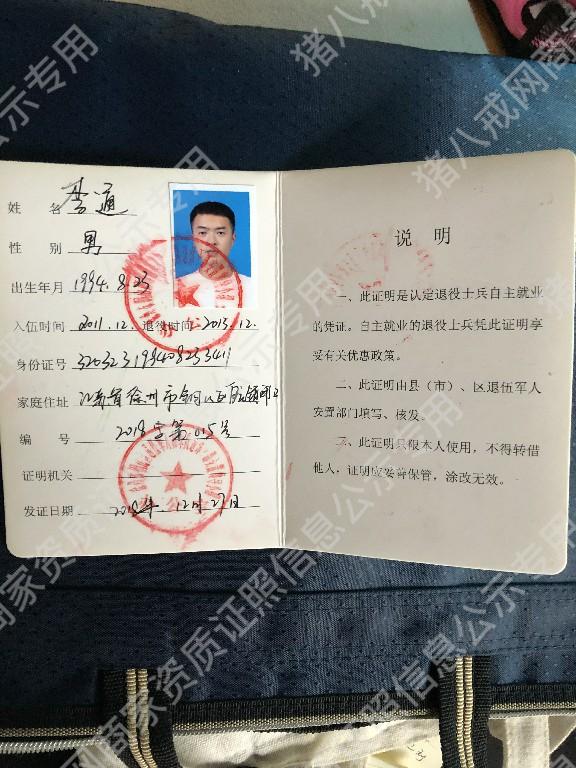 姓 名 李通
性 别 男
出生年月 1994.8.23
入伍时间 2011.12. 退役时间 2013.12.
身份证号 320323199408233411
家庭住址 江苏省徐州市铜山区
编 号 2018字第015号
证明机关
发证日期 2018年12月27日
说 明
一、此证明是认定退役士兵自主就业
的凭证。自主就业的退役士兵凭此证明享
受有关优惠政策。
二、此证明由县（市）、区退伍军人
安置部门填写、核发。
三、此证明只限本人使用，不得转借
他人，证明应妥善保管，涂改无效。
猪八戒网商家资质证照信息公示专用